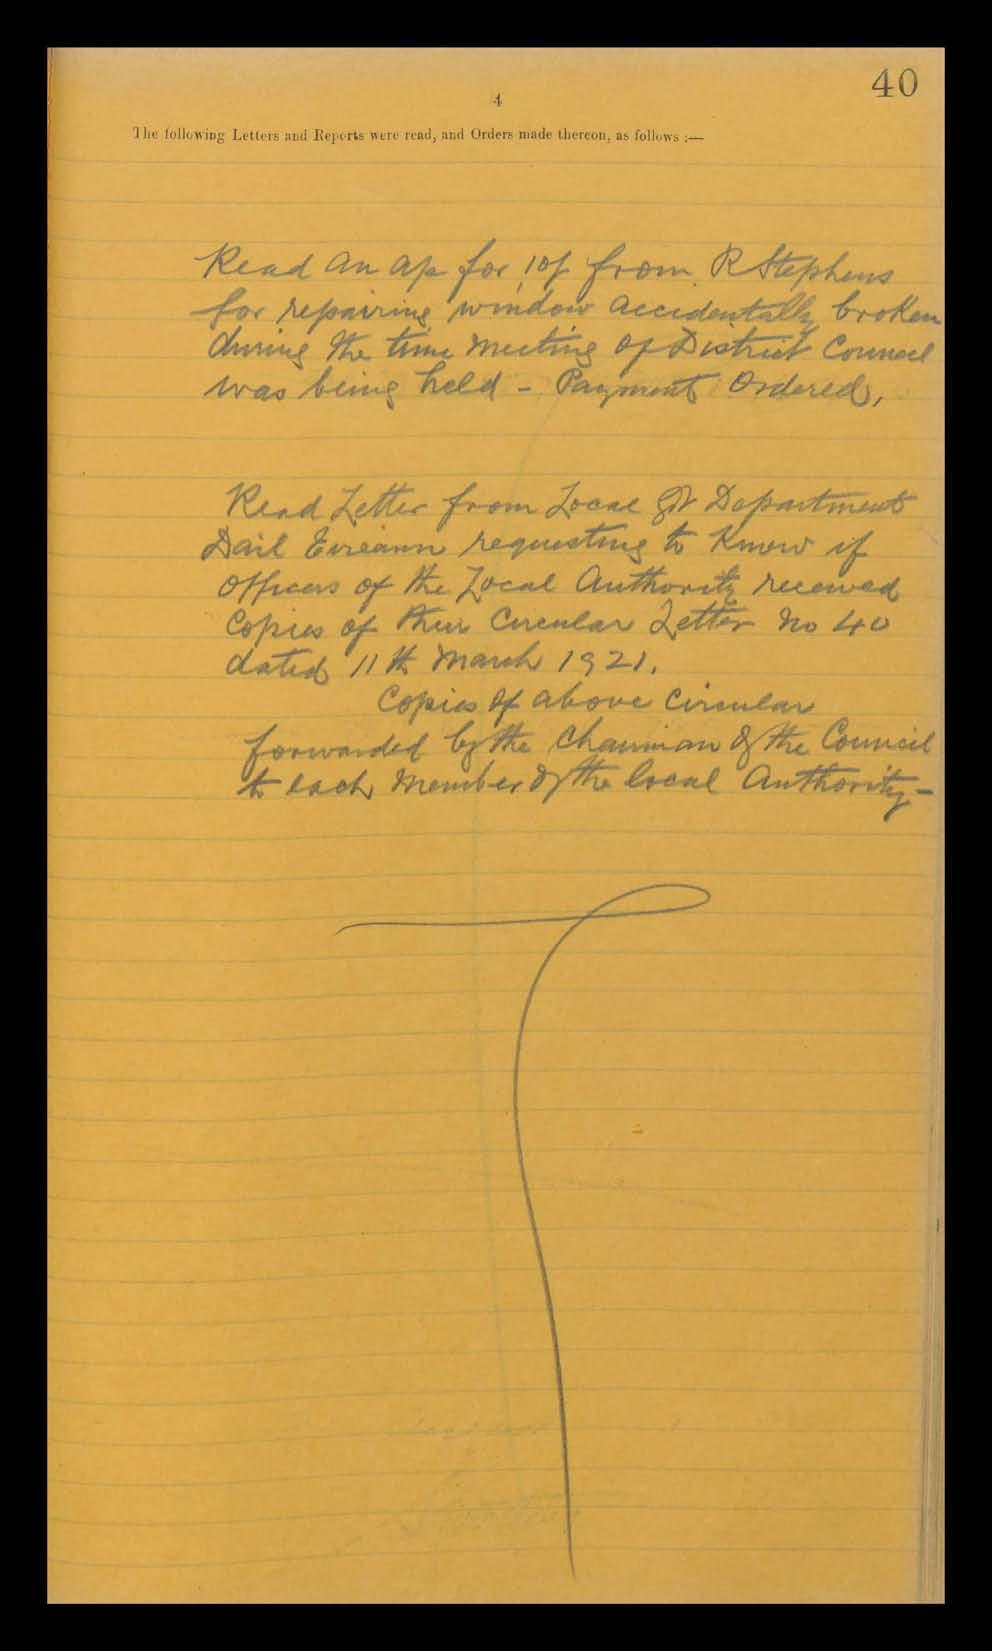 40
4
The following Letters and Reports were read, and Orders made thereon, as follows :—
Read an ap for 10/ from R Stephens
for repairing window accidentally broken
during the time meeting of District Council
was being held - Payment Ordered,
Read Letter from Local Gt Department
Dail Eireann requesting to know if
Officers of the Local Authority received
Copies of their Circular Letter No 40
dated 11th March 1921.
Copies of above Circular
forwarded by the Chairman of the Council
to each member of the local Authority -